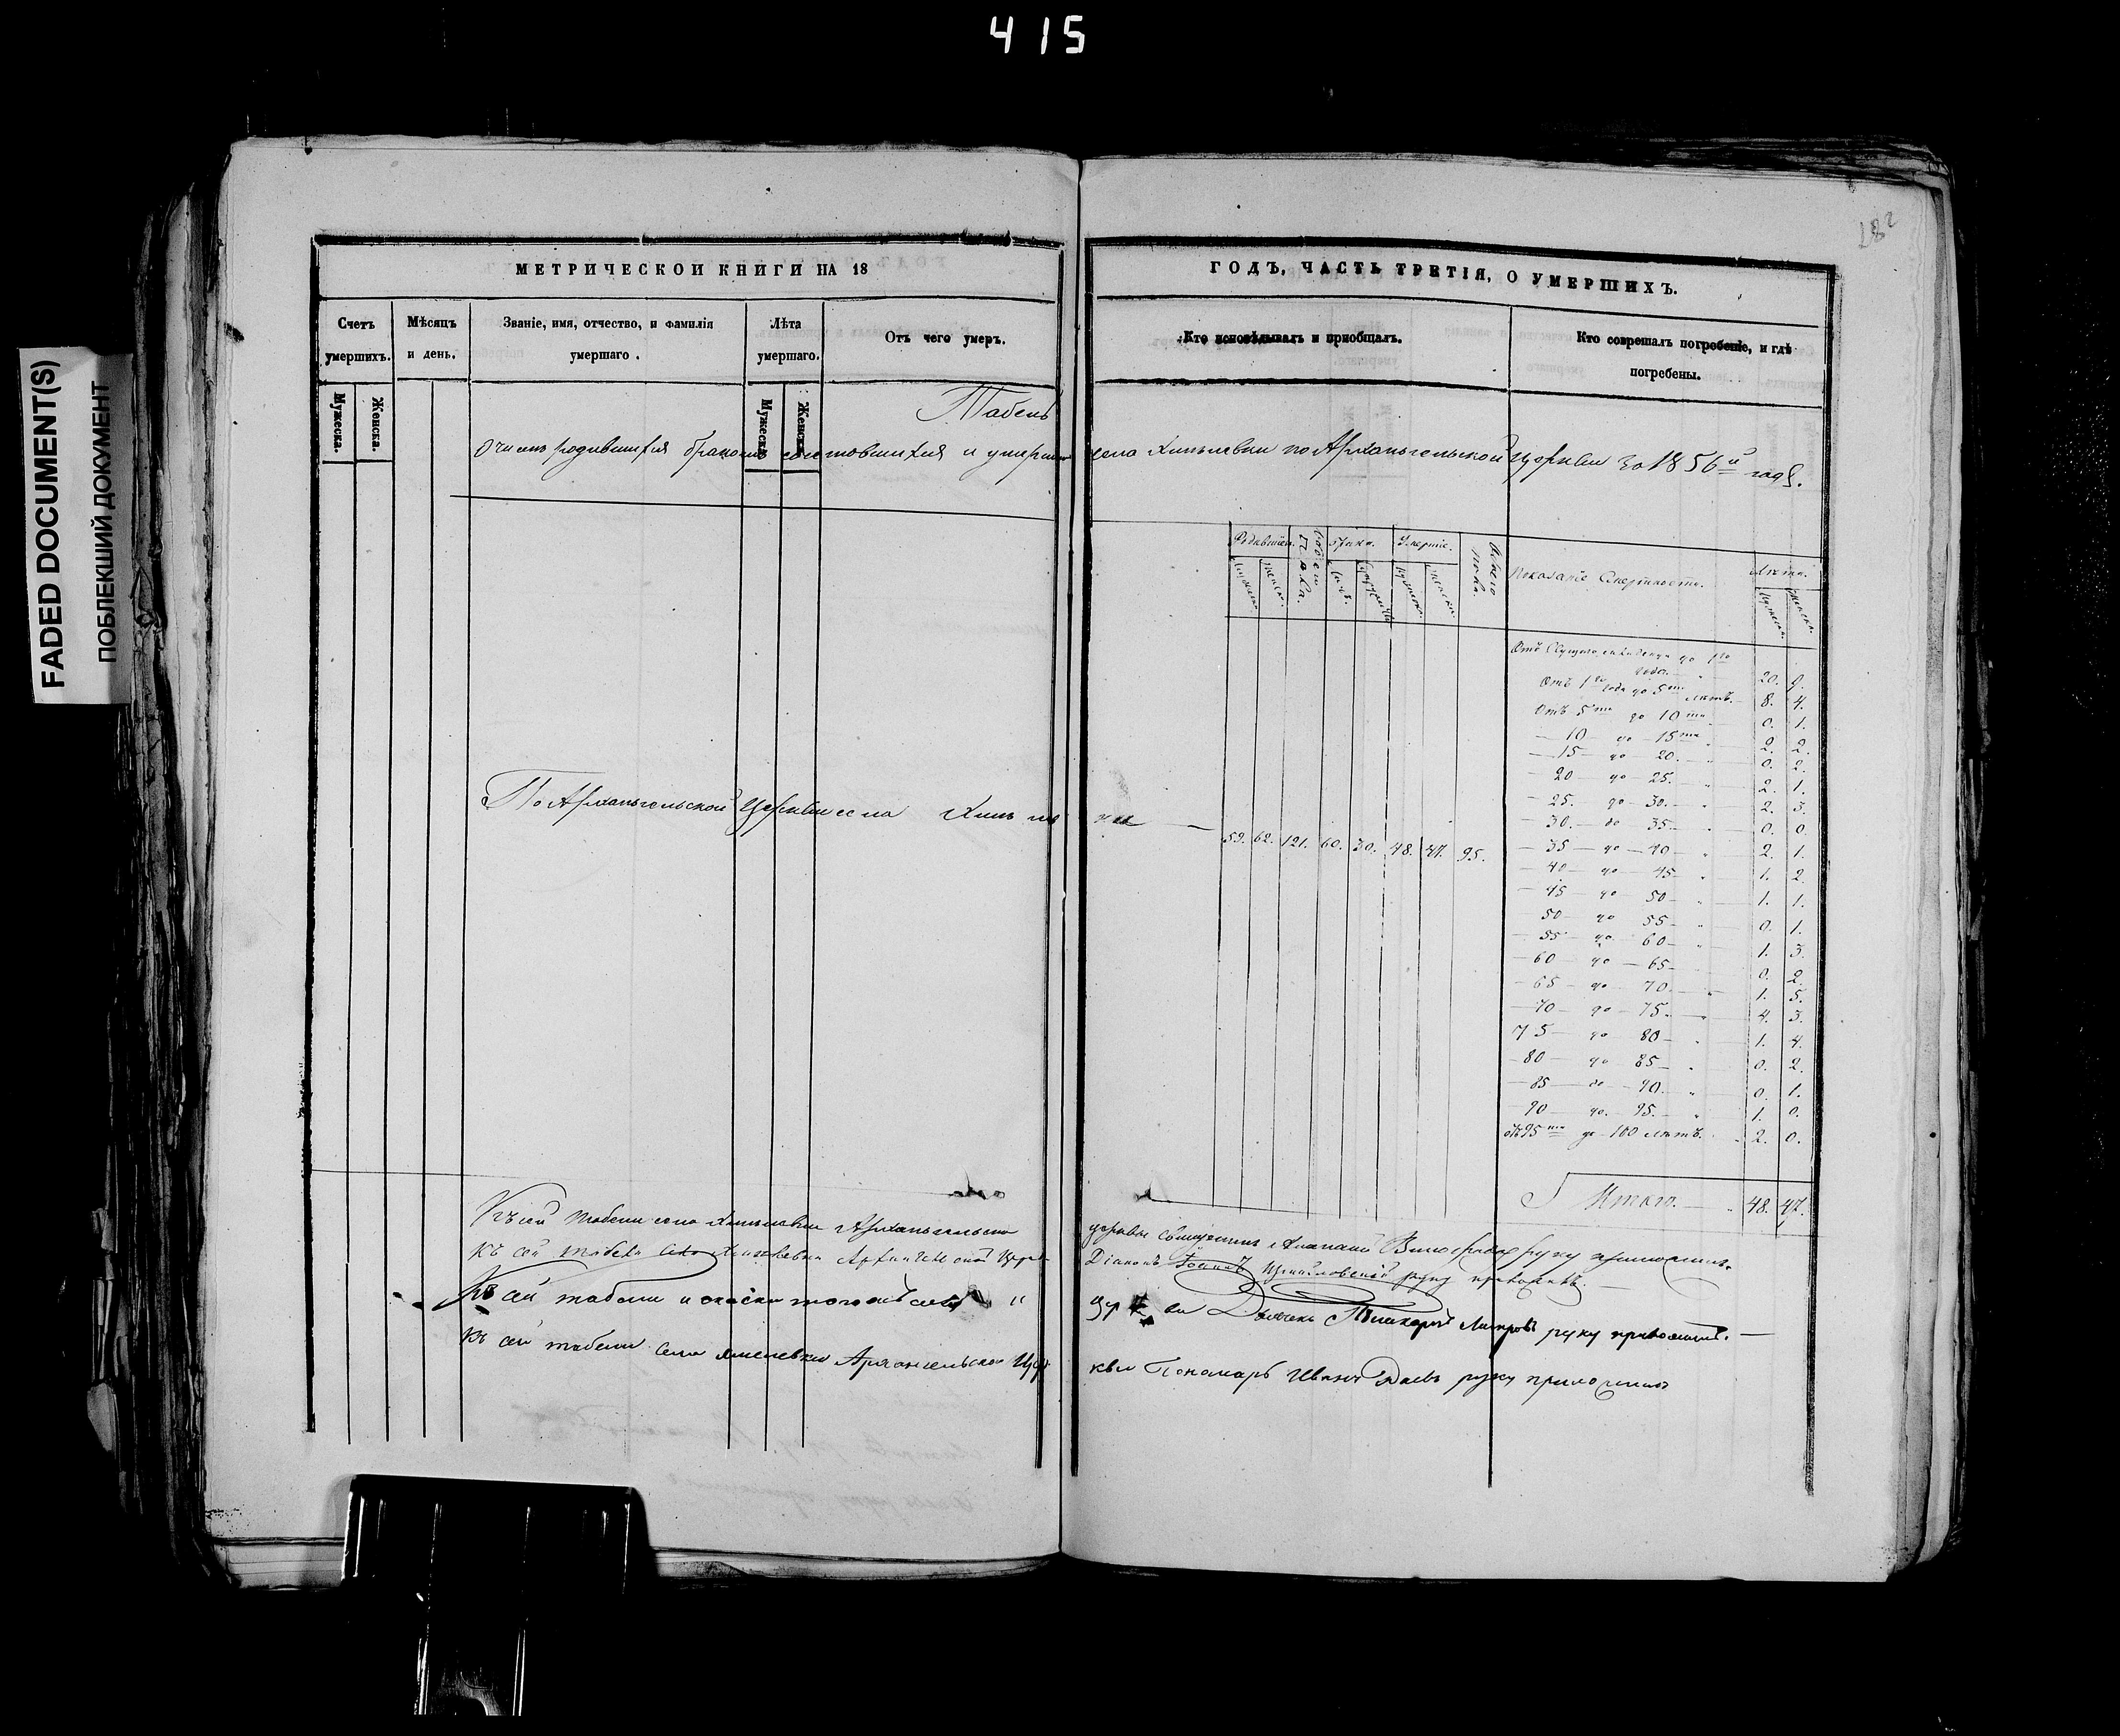 415
FADED DOCUMENT(S)
ПОБЛЕКШИЙ ДОКУМЕНТ
282
МЕТРИЧЕСКОИ КНИГИ НА 18
ГОДЪ, ЧАСТЬ ТРЕТІЯ, О УМЕРШИХЪ.
Счетъ умершихъ.
Мѣсяцъ и день.
Званіе, имя, отчество, и фамилія умершаго.
Лѣта умершаго.
Отъ чего умеръ.
Кто исповѣдывалъ и приобщалъ.
Кто совершалъ погребеніе, и гдѣ погребены.
Мужеска.
Женска.
Мужеска.
Женска.
Табель
О числѣ родившихся бракомъ сочетавшихся и умершихъ села Хмелевки по Архангельской церкви за 1856й годъ.
Родившіеся.
обоего пола.
браки.
Умершіе.
обоего пола.
Показаніе Смертности.
Лѣта.
Мужеска.
Женска.
Мужеска.
Женска.
Мужеска.
Женска.
до 1го года. 20. 9.
Отъ 1го года до 5ти лѣтъ. 8. 4.
Отъ 5ти до 10ти 0. 1.
10 до 15ти 2. 2.
15 до 20. 0. 2.
20 до 25. 2. 1.
25. до 30. 2. 3.
30. до 35. 0. 0.
По Архангельской Церкви села Хмелевки 59. 62. 121. 60. 30. 48. 47. 95.
35 до 40 2. 1.
40 до 45 1. 2.
45 до 50 1. 1.
50 до 55 0. 1.
55 до 60 1. 3.
60 до 65 0. 2.
65 до 70. 1. 5.
70 до 75. 4. 3.
75 до 80 1. 4.
80 до 85 0. 2.
85 до 90. 0. 1.
90 до 95. 1. 0.
Отъ 95ти до 100 лѣтъ. 2. 0.
Итого. 48. 47.
Къ сей табели села Хмелевки Архангельской церкви Священникъ Виноградовъ руку приложилъ.
Къ сей табели села Хмелевки Архангельской Церкви Діаконъ Іоаннъ руку приложилъ.
Къ сей табели церкви Дьячекъ руку приложилъ.
Къ сей табели села Хмелевки Архангельской Церкви Пономарь Иванъ руку приложилъ